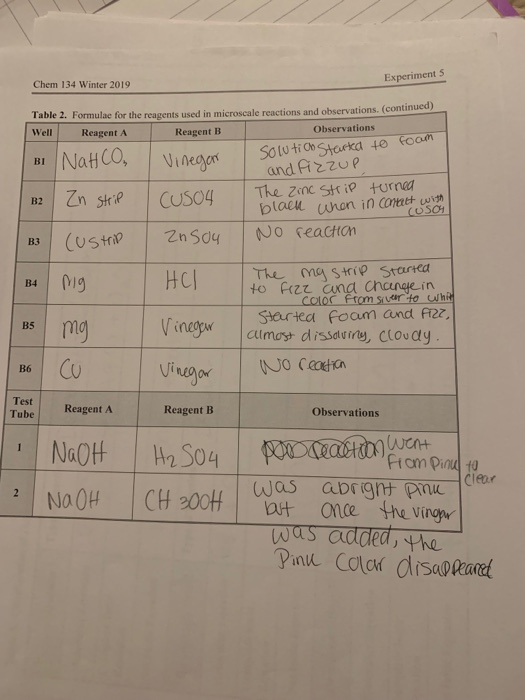 Chem 134 Winter 2019
Experiment 5
Table 2. Formulae for the reagents used in microscale reactions and observations. (continued)
Well Reagent A Reagent B Observations
B1 NaHCO3 Vinegar Solution started to foam
and fizz up
B2 Zn strip CUSO4 The zinc strip turned
black when in contact with
CUSO4
B3 Custrip ZnSO4 No reaction
B4 Mg HCl The mg strip started
to fizz and change in
color from silver to whit
B5 mg Vinegar Started foam and fizz,
almost dissolving, cloudy.
B6 Cu Vinegar No reaction
Test
Tube Reagent A Reagent B Observations
1 NaOH H2SO4 reaction went
from pink to
clear
2 NaOH CH3OOH was a bright pink
but once the vingar
was added, the
Pink color disappeared